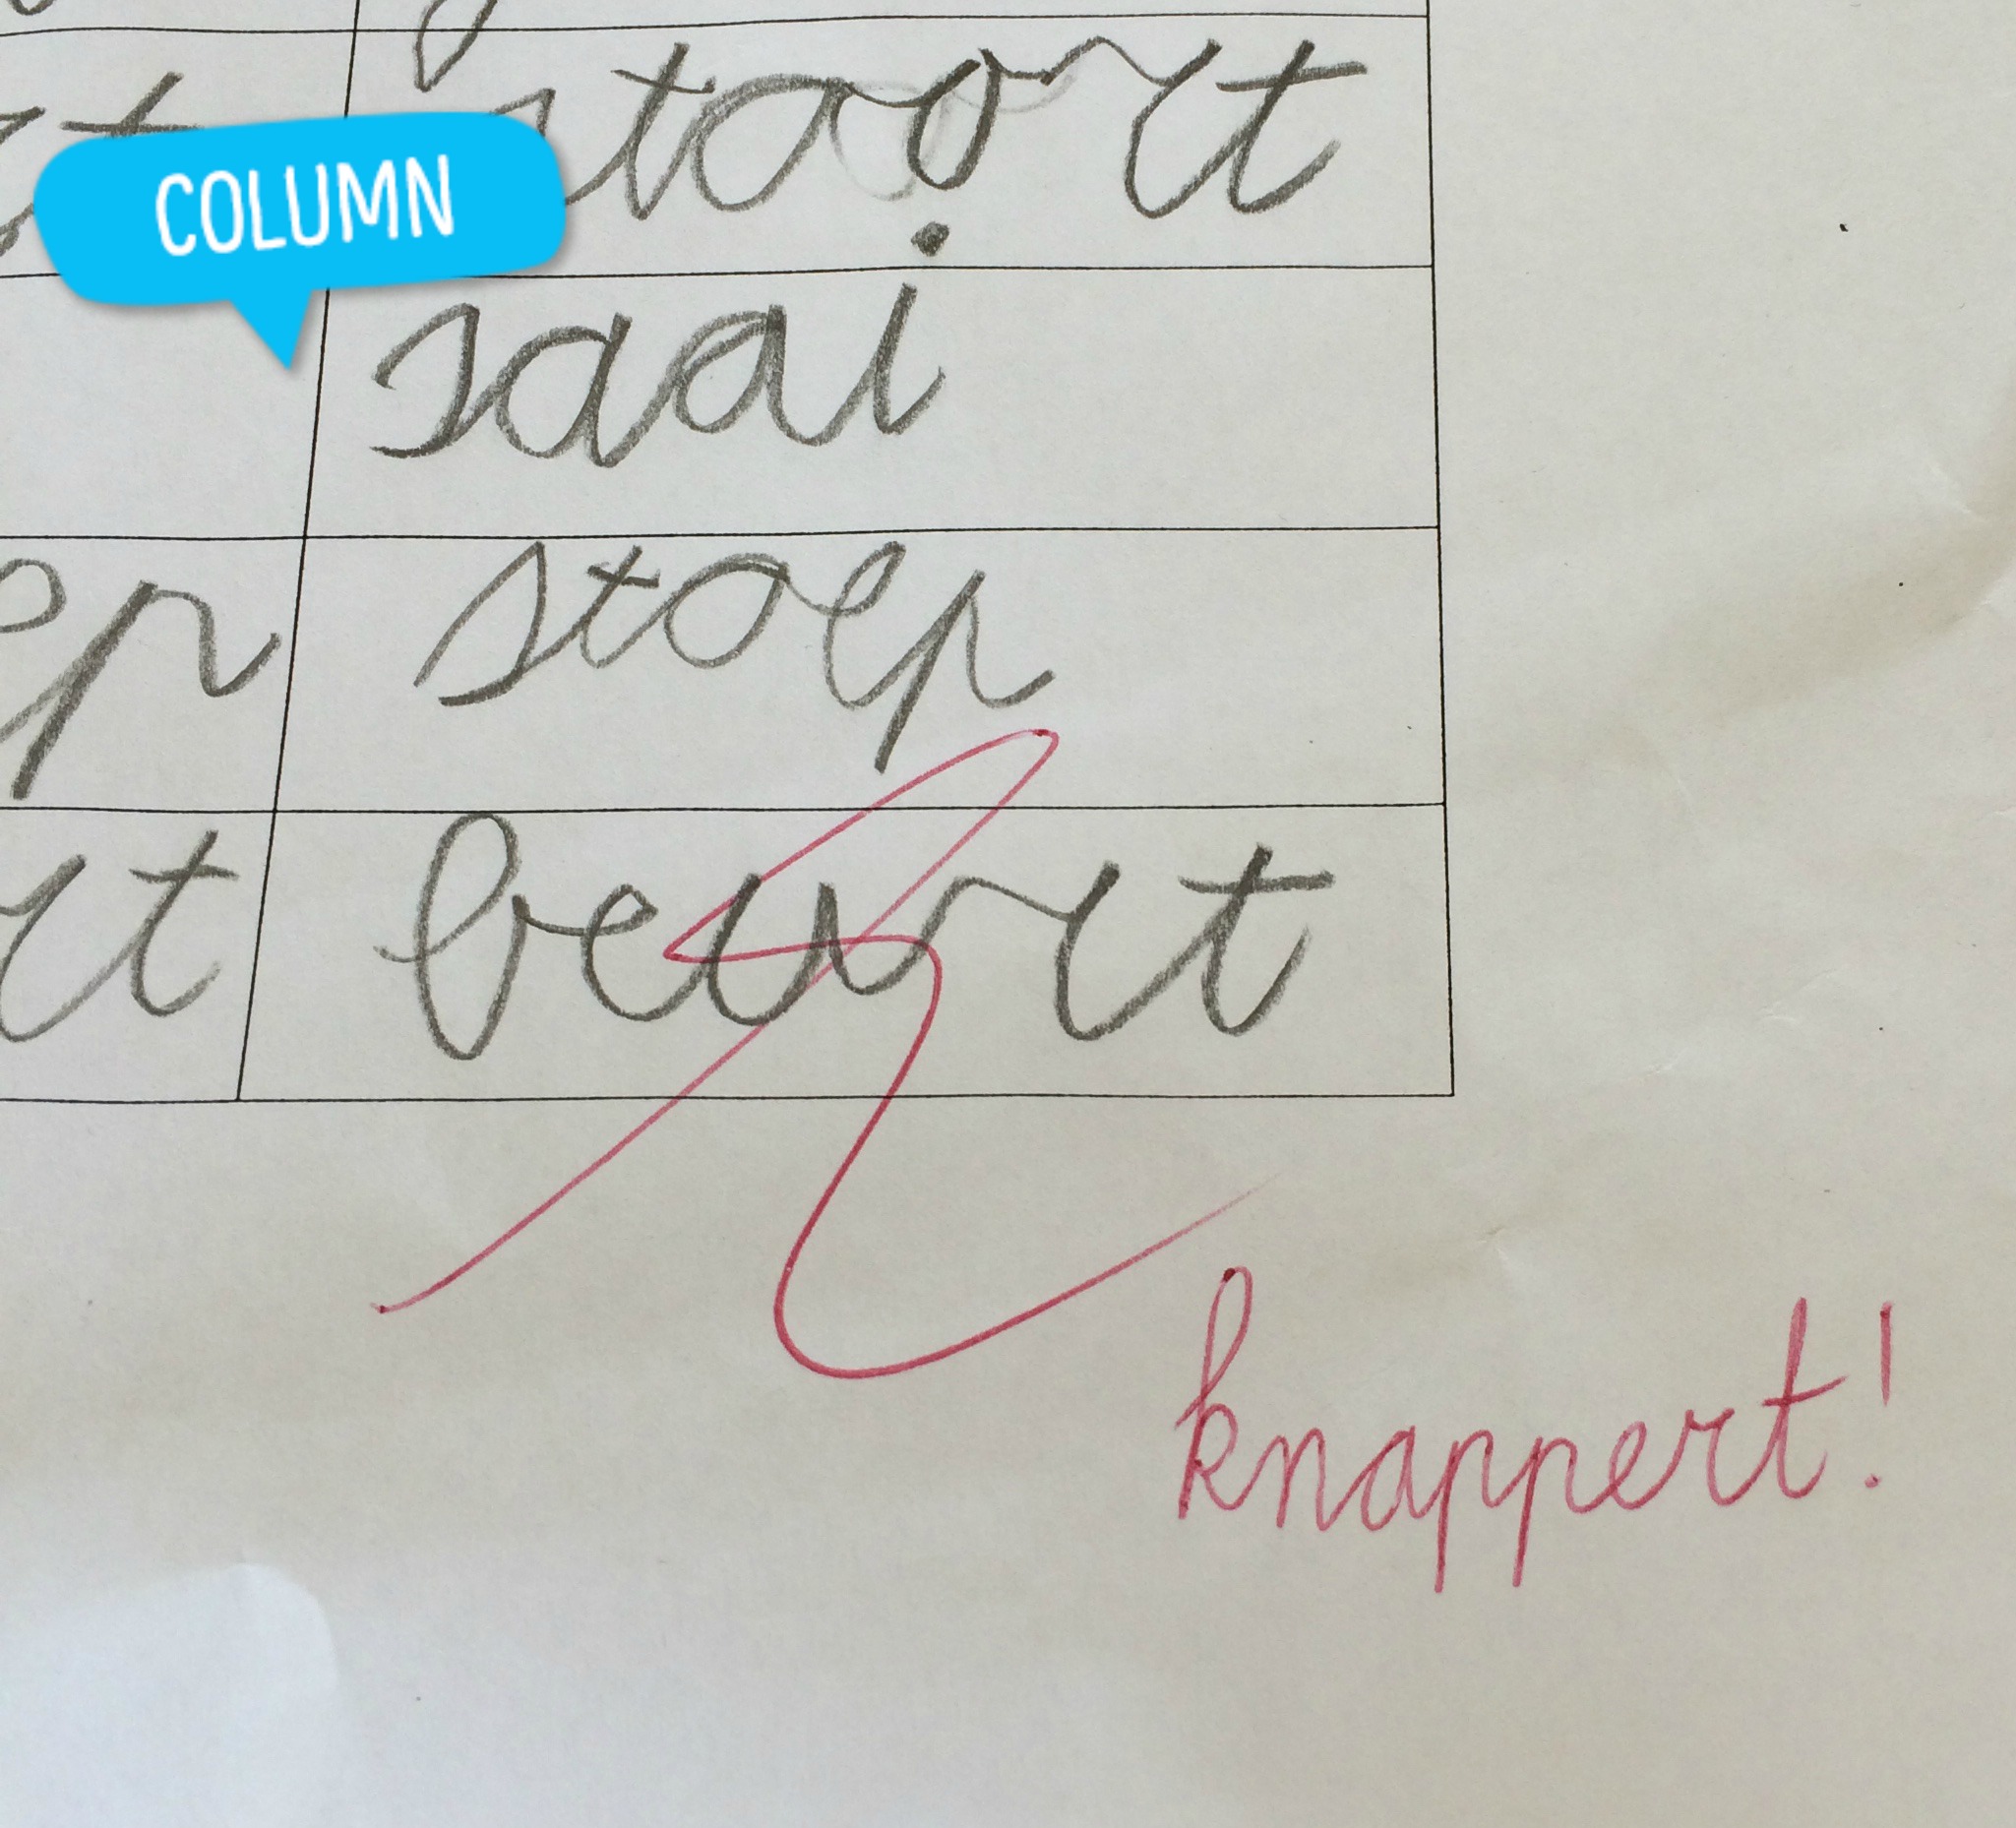 COLUMN
stoort
saai
stoep
beurt
knappert!